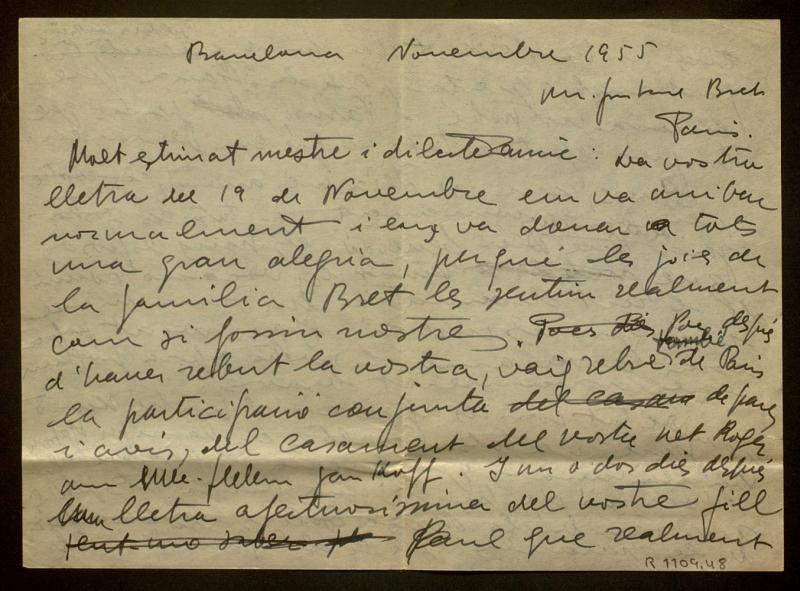 Barcelona Novembre 1955
Mr. Gustave Bret
Paris.
Molt estimat mestre i dilecte amic: La vostra
lletra del 19 de Novembre em va arribar
normalment i ens va donar a tots
una gran alegria, perquè les joies de
la familia Bret les sentim realment
com si fossin nostres. Pocs dies Poc després
d'haver rebut la vostra, vaig rebre de Paris
la participació conjunta del casam de pares
i avis, del casament del vostre net Roger
am Mlle. Helen Jankoff. I un o dos dies després
una lletra afectuosissima del vostre fill
fent-me saber Paul que realment
R 1109,48